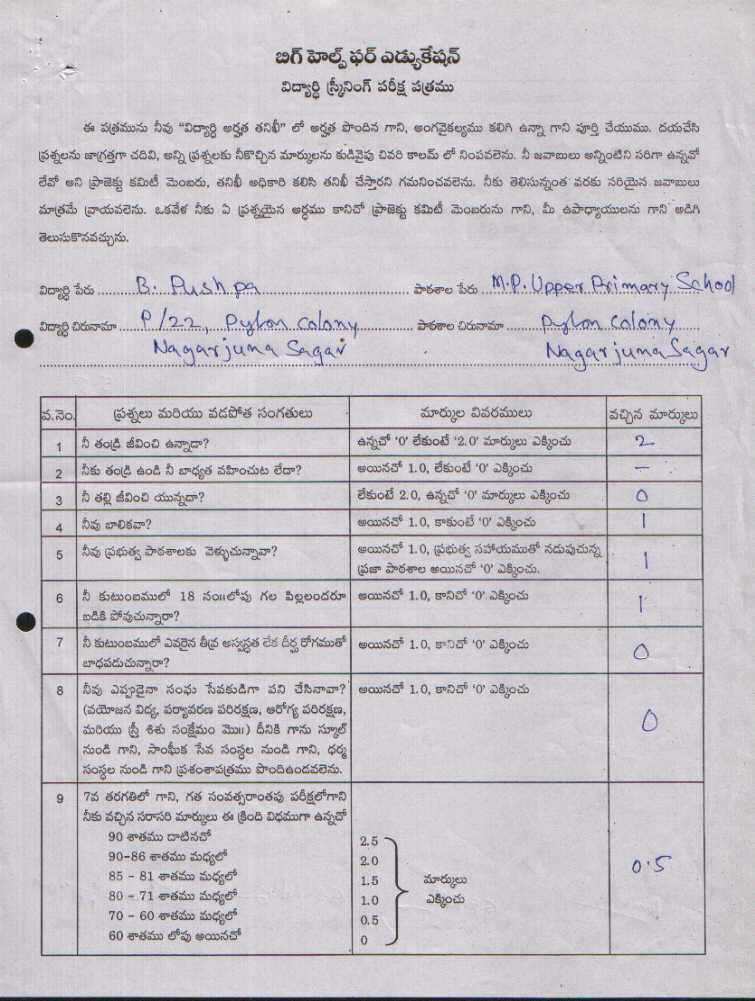 బిగ్ హెల్ప్ ఫర్ ఎడ్యుకేషన్
విద్యార్థి స్క్రీనింగ్ పరీక్ష పత్రము
ఈ పత్రమును నీవు "విద్యార్థి అర్హత తనిఖీ" లో అర్హత పొందిన గాని, అంగవైకల్యము కలిగి ఉన్నా గాని పూర్తి చేయుము. దయచేసి
ప్రశ్నలను జాగ్రత్తగా చదివి, అన్ని ప్రశ్నలకు నీకొచ్చిన మార్కులను కుడివైపు చివరి కాలమ్ లో నింపవలెను. నీ జవాబులు అన్నింటిని సరిగా ఉన్నవో
లేవో అని ప్రాజెక్టు కమిటీ మెంబరు, తనిఖీ అధికారి కలిసి తనిఖీ చేస్తారని గమనించవలెను. నీకు తెలిసున్నంత వరకు సరియైన జవాబులు
మాత్రమే వ్రాయవలెను. ఒకవేళ నీకు ఏ ప్రశ్నయైన అర్థము కానిచో ప్రాజెక్టు కమిటీ మెంబరును గాని, మీ ఉపాధ్యాయులను గాని అడిగి
తెలుసుకొనవచ్చును.
విద్యార్థి పేరు ........ B. Pushpa ........ పాఠశాల పేరు .. M.P. Upper Primary School
విద్యార్థి చిరునామా .... P/22, Pylon colony ........ పాఠశాల చిరునామా ........ Pylon colony
Nagarjuna Sagar Nagarjuna Sagar
వ.నెం. ప్రశ్నలు మరియు వడపోత సంగతులు మార్కుల వివరములు వచ్చిన మార్కులు
1 నీ తండ్రి జీవించి ఉన్నాడా? ఉన్నచో '0' లేకుంటే '2.0' మార్కులు ఎక్కించు 2
2 నీకు తండ్రి ఉండి నీ బాధ్యత వహించుట లేదా? అయినచో 1.0, లేకుంటే '0' ఎక్కించు –
3 నీ తల్లి జీవించి యున్నదా? లేకుంటే 2.0, ఉన్నచో '0' మార్కులు ఎక్కించు 0
4 నీవు బాలికవా? అయినచో 1.0, కాకుంటే '0' ఎక్కించు 1
5 నీవు ప్రభుత్వ పాఠశాలకు వెళ్ళుచున్నావా? అయినచో 1.0, (ప్రభుత్వ సహాయముతో నడుపుచున్న 1
ప్రజా పాఠశాల అయినచో '0' ఎక్కించు.
6 నీ కుటుంబములో 18 సం॥లోపు గల పిల్లలందరూ అయినచో 1.0, కానిచో '0' ఎక్కించు 1
బడికి పోవుచున్నారా?
7 నీ కుటుంబములో ఎవరైన తీవ్ర అస్వస్థత లేక దీర్ఘ రోగముతో అయినచో 1.0, కానిచో '0' ఎక్కించు 0
బాధపడుచున్నారా?
8 నీవు ఎప్పుడైనా సంఘ సేవకుడిగా పని చేసినావా? అయినచో 1.0, కానిచో '0' ఎక్కించు 0
(వయోజన విద్య, పర్యావరణ పరిరక్షణ, ఆరోగ్య పరిరక్షణ,
మరియు స్త్రీ శిశు సంక్షేమం మొ॥) దీనికి గాను స్కూల్
నుండి గాని, సాంఘీక సేవ సంస్థల నుండి గాని, ధర్మ
సంస్థల నుండి గాని ప్రశంశాపత్రము పొందిఉండవలెను.
9 7వ తరగతిలో గాని, గత సంవత్సరాంతపు పరీక్షలోగాని
నీకు వచ్చిన సరాసరి మార్కులు ఈ క్రింది విధముగా ఉన్నచో
90 శాతము దాటినచో 2.5
90-86 శాతము మధ్యలో 2.0 0.5
85 - 81 శాతము మధ్యలో 1.5 మార్కులు
80 - 71 శాతము మధ్యలో 1.0 ఎక్కించు
70 - 60 శాతము మధ్యలో 0.5
60 శాతము లోపు అయినచో 0